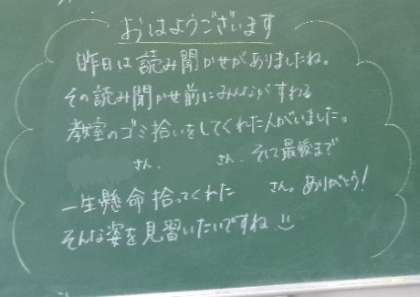 おはようございます
昨日は読み聞かせがありましたね。
その読み聞かせ前にみんながすわる
教室のゴミ拾いをしてくれた人がいました。
さん、 さん、そして最後まで
一生懸命拾ってくれた さん。ありがとう!
そんな姿を見習いたいですね